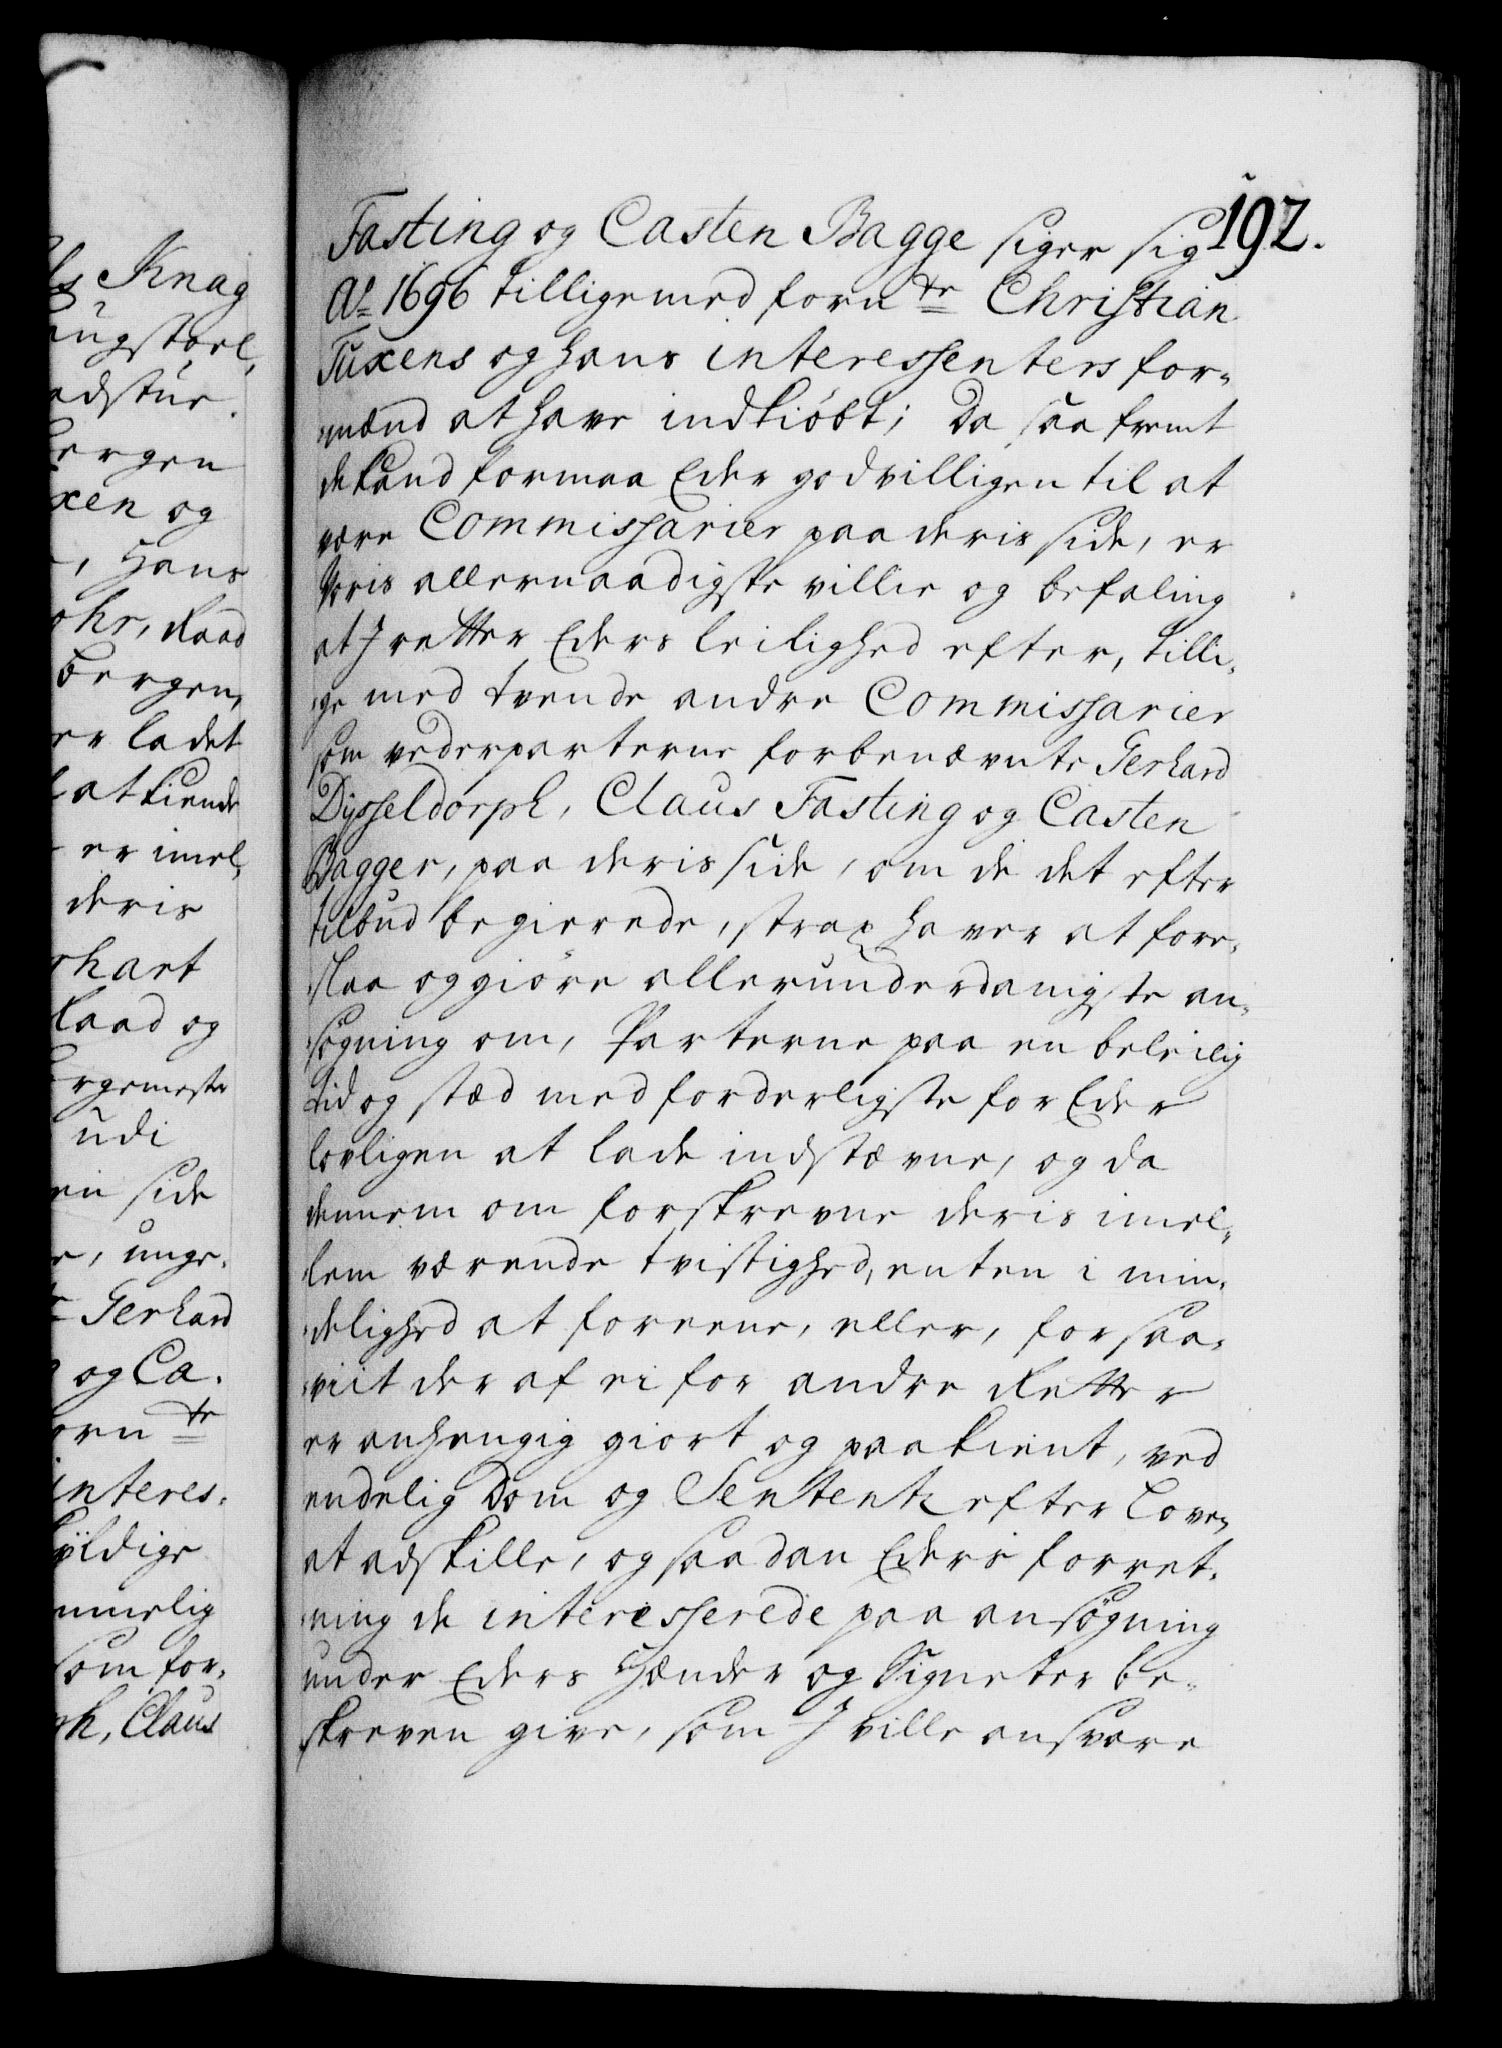 192.
Fasting og Casten Bagge siger sig
Aº 1696 tilligemed fornte Christian
Tuxens og hans interessenters for-
mænd at have indkiöbt; Da saa fremt
de kand formaa Eder godvilligen til at
være Commissarier paa deris side, er
Voris allernaadigste villie og befaling
at I retter Eders leilighed efter, tilli-
ge med tvende andre Commissarier
som vederparterne forbenævnte Gerhard
Dysseldorph, Claus Fasting og Casten
Bagger, paa deris side, om de det efter
tilbud begierede, strax haver at fore-
slaa og giöre allerunderdanigste an-
sögning om, Parterne paa en beleilig
tid og stæd med forderligste for Eder
lovligen at lade indstævne, og da
dennem om forskrevne deris imel-
lem værende tvistighed, enten i min-
delighed at foreene, eller, forsaa-
viit der af ei for andre Retter
er anhengig giort og paakient, ved
endelig Dom og Sententz efter Loven
at adskille, og saadan Eders forret-
ning de interesserede paa ansögning
under Eders Hænder og Signeter be-
skreven give, som I ville ansvare
Knag
og
, Hans
ohr, Raad
bergen,
er ladet
at kiende
er imel-
deris
rhart
Raad og
udi
en side
e, unge-
Gerhard
og Ca-
ornte
interes-
yldige
som for-
ph, Claus